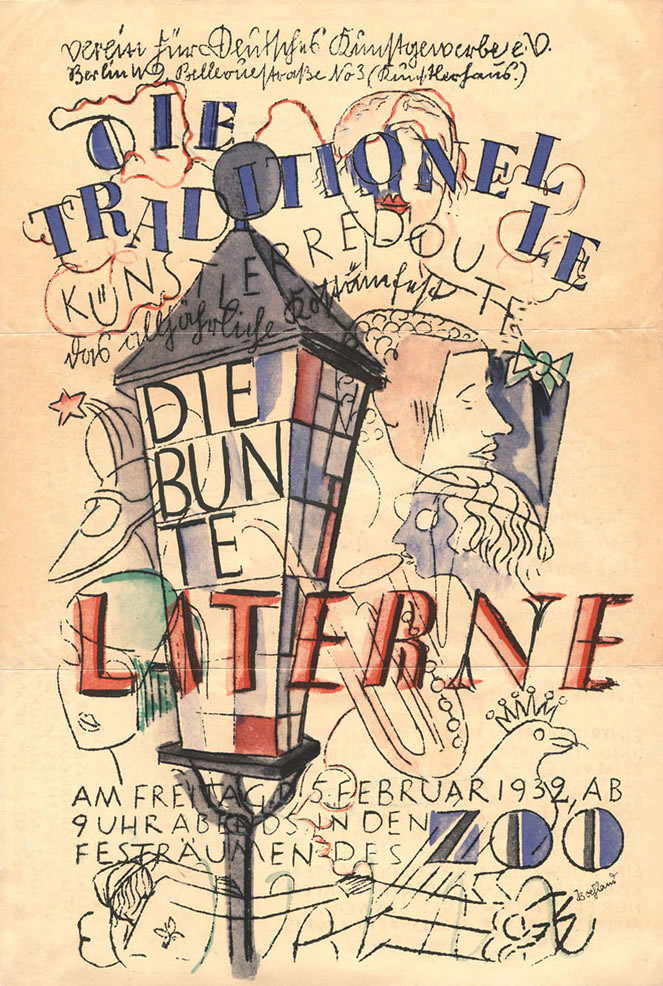 Verein für Deutsches Kunstgewerbe e.V.
Berlin W 9, Bellevuestraße No 3 (Künstlerhaus.)
DIE
TRADITIONEL
LE
KÜNSTLERREDOUTE
das alljährliche Kostümfest
DIE
BUN
TE
LATERNE
AM FREITAG, D. 5. FEBRUAR 1932, AB
9 UHR ABENDS IN DEN
FESTRÄUMEN DES ZOO
Boehland